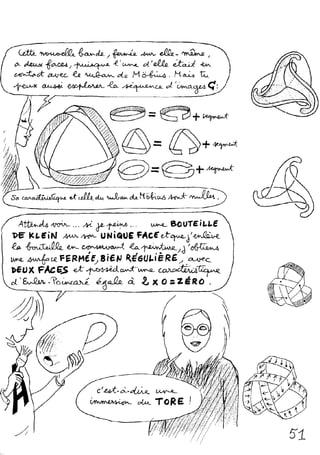 Cette nouvelle bande, fermée sur elle-même,
a deux faces, puisque l'une d'elle était en
contact avec le ruban de Möbius. Mais tu
peux aussi explorer la séquence d'images G:
= + segment
= + segment
= + segment
Sa caractéristique et celle du ruban de Möbius sont nulles.
Attends voir... si je peins... une BOUTEILLE
DE KLEIN sur son UNIQUE FACE et que j'enlève
la bouteille en conservant la peinture, j'obtiens
une surface FERMÉE, BIEN RÉGULIÈRE, avec
DEUX FACES et possédant une caractéristique
d'Euler-Poincaré égale à 2 x 0 = ZÉRO.
c'est-à-dire une
immersion du TORE !
A
51